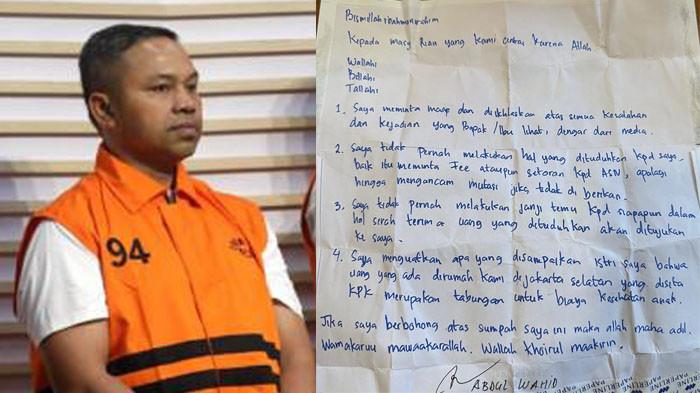 94
Bismillahirahmanirohim
Kepada masy Riau yang kami cintai karena Allah
Wallahi
Billahi
Tallahi
1. Saya meminta maap dan diikhlaskan atas semua kesalahan
dan kejadian yang Bapak/Ibu lihat, dengar dari media.
2. Saya tidak pernah melakukan hal yang dituduhkan kpd saya.
baik itu meminta Fee ataupun setoran kpd ASN, apalagi
hingga mengancam mutasi jika tidak di berikan.
3. Saya tidak pernah melakukan janji temu kpd siapapun dalam
hal serah terima uang yang dituduhkan akan ditujukan
ke saya.
4. Saya menguatkan apa yang disampaikan istri saya bahwa
uang yang ada dirumah kami dejakarta selatan yang disita
KPK merupakan tabungan untuk biaya kesehatan anak.
Jika saya berbohong atas sumpah saya ini maka allah maha adil.
Wamakaruu mawaakarallah. Wallah khoirul maakirin.
ABDUL WAHID
PAPERLINE